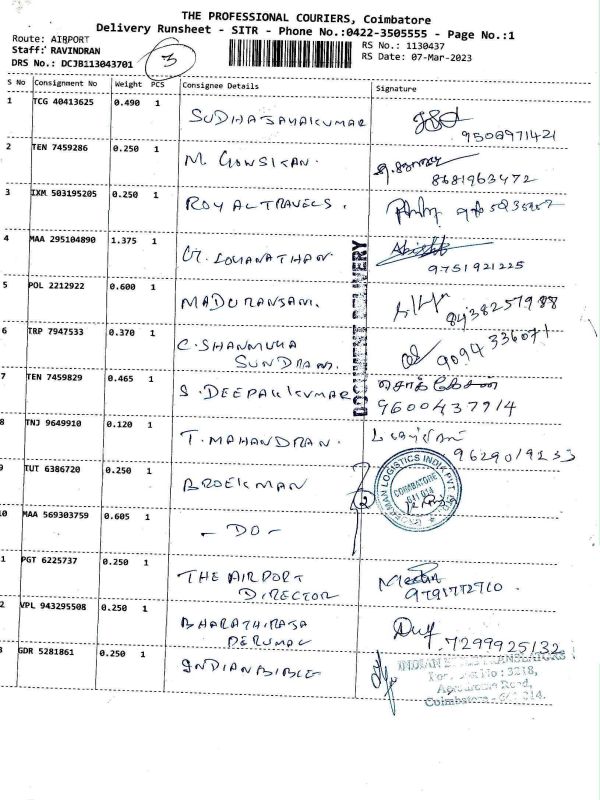 THE PROFESSIONAL COURIERS, Coimbatore
Delivery Runsheet - SITR - Phone No.:0422-3505555 - Page No.:1
Route: AIRPORT
Staff: RAVINDRAN
DRS No.: DCJB113043701
3
RS No.: 1130437
RS Date: 07-Mar-2023
S No Consignment No Weight PCS Consignee Details Signature
1 TCG 40413625 0.490 1 SUDHAJAYAKUMAR
9508971421
2 TEN 7459286 0.250 1 M. GOWSIKAN.
8681963472
3 IXM 503195205 0.250 1 ROYALTRAVELS.
4 MAA 295104890 1.375 1 LOGANATHAN
9751921225
5 POL 2212922 0.600 1 MADURANSAMI.
8438257988
6 TRP 7947533 0.370 1 C. SHANMUGA
SUNDRAM.
9094336071
7 TEN 7459829 0.465 1 S. DEEPAKKUMAR
9600437914
8 TNJ 9649910 0.120 1 T. MAHANDRAN.
9629019233
9 TUT 6386720 0.250 1 BROEKMAN
10 MAA 569303759 0.605 1 - DO -
1 PGT 6225737 0.250 1 THE AIRPORT
DIRECTOR
9791772710.
2 VPL 943295508 0.250 1 BHARATHIRAJA
PERUMAL
7299925132
3 GDR 5281861 0.250 1 INDIANBIBLE
DOCUMENT DELIVERY
BROEKMAN LOGISTICS INDIA PVT. LTD.
COIMBATORE
641 014
INDIAN BIBLE TRANSLATORS
Post Box No : 3218,
Aerodrome Road,
Coimbatore - 641 014.